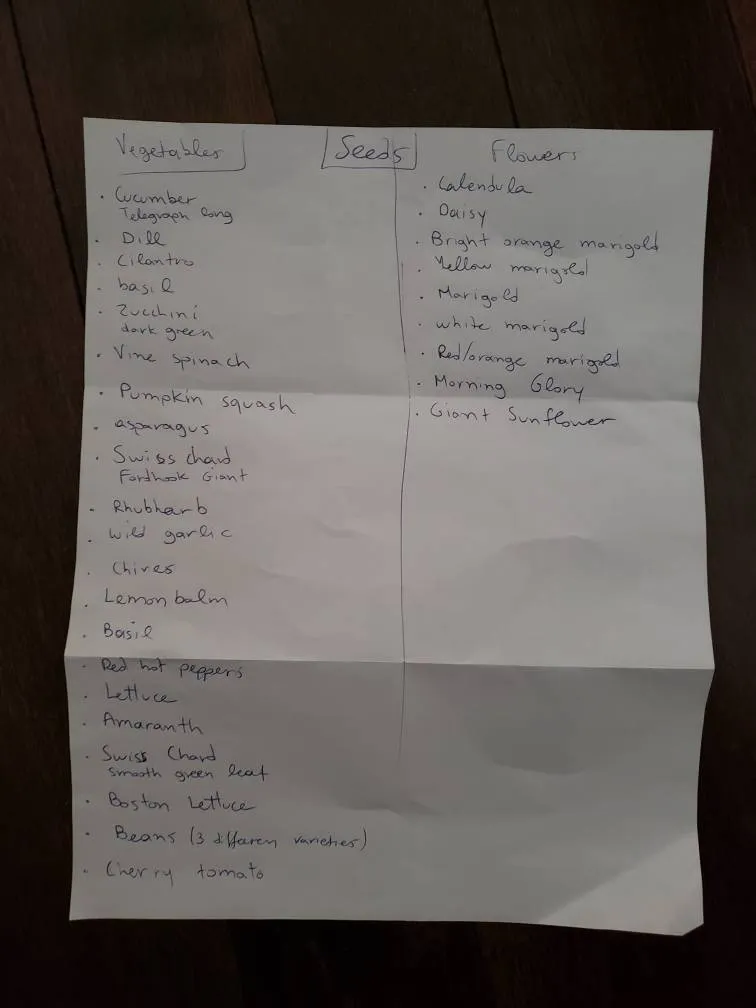 Seeds
Vegetables
· Cucumber
Telegraph long
· Dill
· Cilantro
· basil
· Zucchini
dark green
· Vine spinach
· Pumpkin squash
· asparagus
· Swiss chard
Fordhook Giant
· Rhubharb
· wild garlic
· Chives
· Lemon balm
· Basil
· Red hot peppers
· Lettuce
· Amaranth
· Swiss Chard
smooth green leaf
· Boston Lettuce
· Beans (3 differen varieties)
· Cherry tomato
Flowers
· Calendula
· Daisy
· Bright orange marigold
· Yellow marigold
· Marigold
· white marigold
· Red/orange marigold
· Morning Glory
· Giant Sunflower